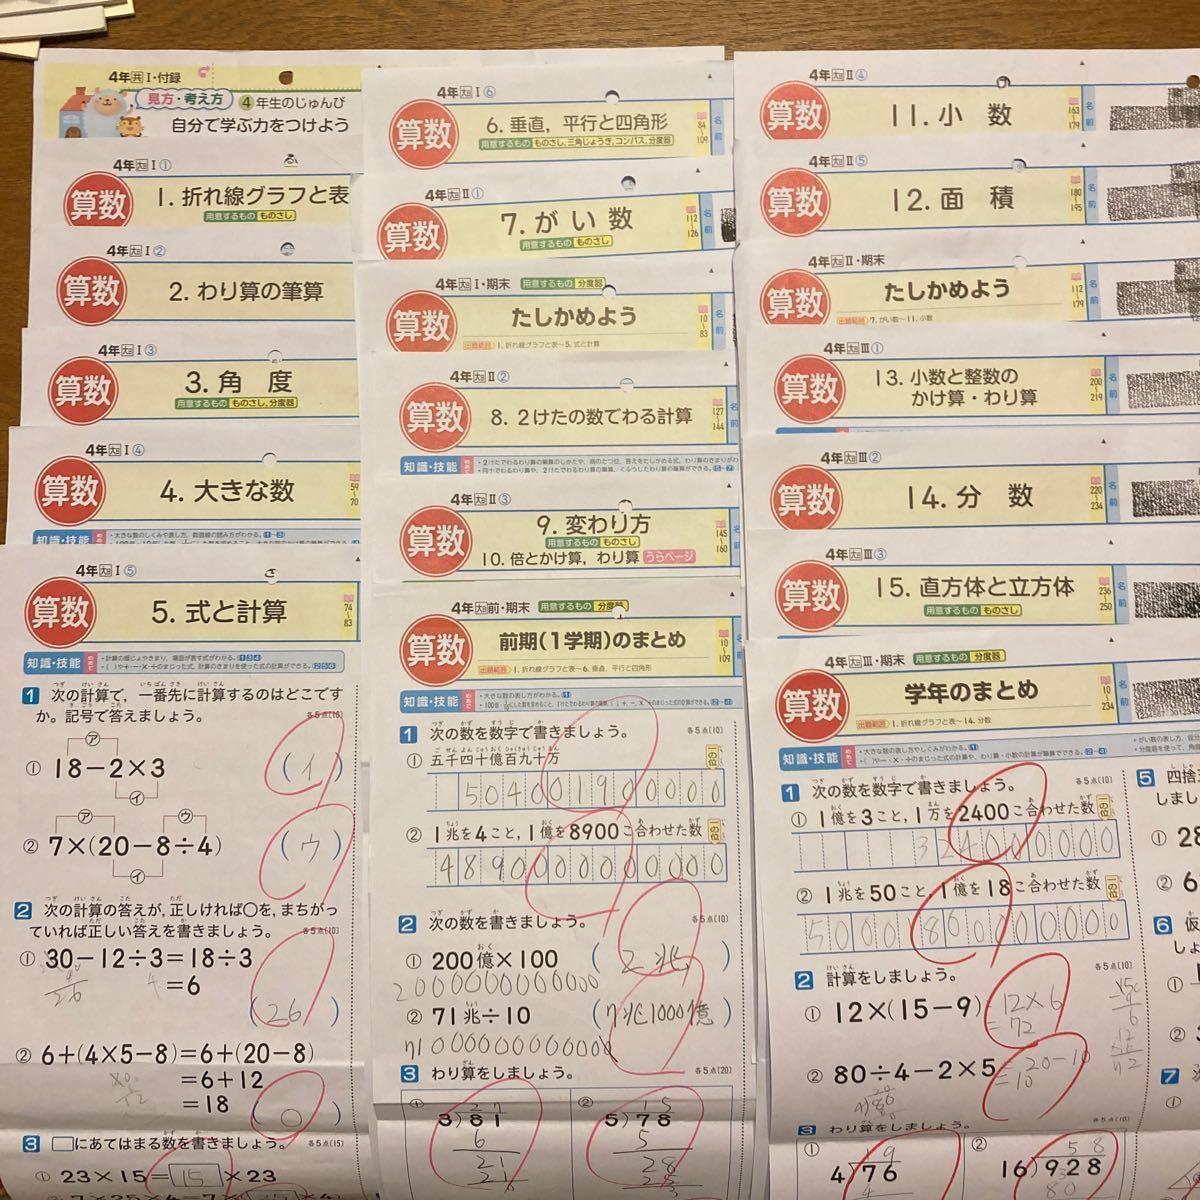 4年 Ⅰ・付録
見方・考え方
4年生のじゅんび
自分で学ぶ力をつけよう
4年 Ⅰ①
算数
1. 折れ線グラフと表
用意するもの ものさし
4年 Ⅰ②
算数
2. わり算の筆算
4年 Ⅰ③
算数
3. 角 度
用意するもの ものさし, 分度器
4年 Ⅰ④
算数
4. 大きな数
59〜70
知識・技能
4年 Ⅰ⑤
算数
5. 式と計算
74〜83
知識・技能
1 次の計算で, 一番先に計算するのはどこですか。記号で答えましょう。
各5点(10)
㋐
① 18−2×3
㋑
(イ)
㋐ ㋒
② 7×(20−8÷4)
㋑
(ウ)
2 次の計算の答えが, 正しければ○を, まちがっていれば正しい答えを書きましょう。
各5点(10)
① 30−12÷3=18÷3
=6
(26)
② 6+(4×5−8)=6+(20−8)
=6+12
=18
(○)
3 □にあてはまる数を書きましょう。
各5点(15)
① 23×15=15×23
4年 Ⅰ⑥
算数
6. 垂直, 平行と四角形
用意するもの ものさし, 三角じょうぎ, コンパス, 分度器
84〜109
4年 Ⅱ①
算数
7. がい数
用意するもの ものさし
112〜126
名前
4年 Ⅰ・期末 用意するもの 分度器
算数
たしかめよう
出題範囲 1. 折れ線グラフと表〜5. 式と計算
10〜83
名前
4年 Ⅱ②
算数
8. 2けたの数でわる計算
127〜144
名前
知識・技能
4年 Ⅱ③
算数
9. 変わり方
用意するもの ものさし
10. 倍とかけ算, わり算 うらページ
145〜160
名前
4年 前・期末 用意するもの 分度器
算数
前期(1学期)のまとめ
出題範囲 1. 折れ線グラフと表〜6. 垂直, 平行と四角形
10〜109
名前
知識・技能
1 次の数を数字で書きましょう。
各5点(10)
① 五千四十億百九十万
一の位
504001900000
② 1兆を4こと, 1億を8900こ合わせた数
一の位
4890000000000
2 次の数を書きましょう。
各5点(10)
① 200億×100
(2兆)
2000000000000
② 71兆÷10
(7兆1000億)
3 わり算をしましょう。
各5点(20)
①
27
3)81
6
21
21
②
15
5)78
5
28
4年 Ⅱ④
算数
11. 小 数
163〜179
名前
4年 Ⅱ⑤
算数
12. 面 積
180〜195
名前
4年 Ⅱ・期末
算数
たしかめよう
出題範囲 7. がい数〜11. 小数
112〜179
名前
4年 Ⅲ①
算数
13. 小数と整数の
かけ算・わり算
200〜219
名前
4年 Ⅲ②
算数
14. 分 数
220〜234
名前
4年 Ⅲ③
算数
15. 直方体と立方体
用意するもの ものさし
236〜250
名前
4年 Ⅲ・期末 用意するもの 分度器
算数
学年のまとめ
出題範囲 1. 折れ線グラフと表〜14. 分数
10〜234
名前
知識・技能
1 次の数を数字で書きましょう。
各5点(10)
① 1億を3こと, 1万を2400こ合わせた数
一の位
324000000
② 1兆を50こと, 1億を18こ合わせた数
一の位
2 計算をしましょう。
各5点(10)
① 12×(15−9)
=12×6
=72
② 80÷4−2×5
=20−10
=10
3 わり算をしましょう。
①
19
4)76
4
②
58
16)928
80
5 四捨
6 仮
7